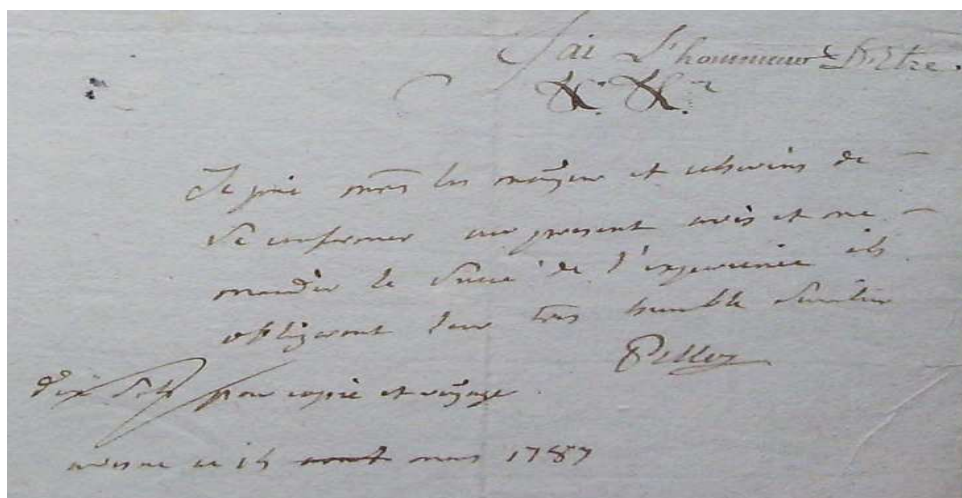 J'ai L'honneur D'Etre.
&c. &c.
Je prie mrs les mayeur et echevins de
se conformer au present avis et me
mander le succé de l'experience ils
obligeront leur tres humble serviteur
Pillot
dix sols pour copie et voyage
avesne ce 15 aout mars 1787